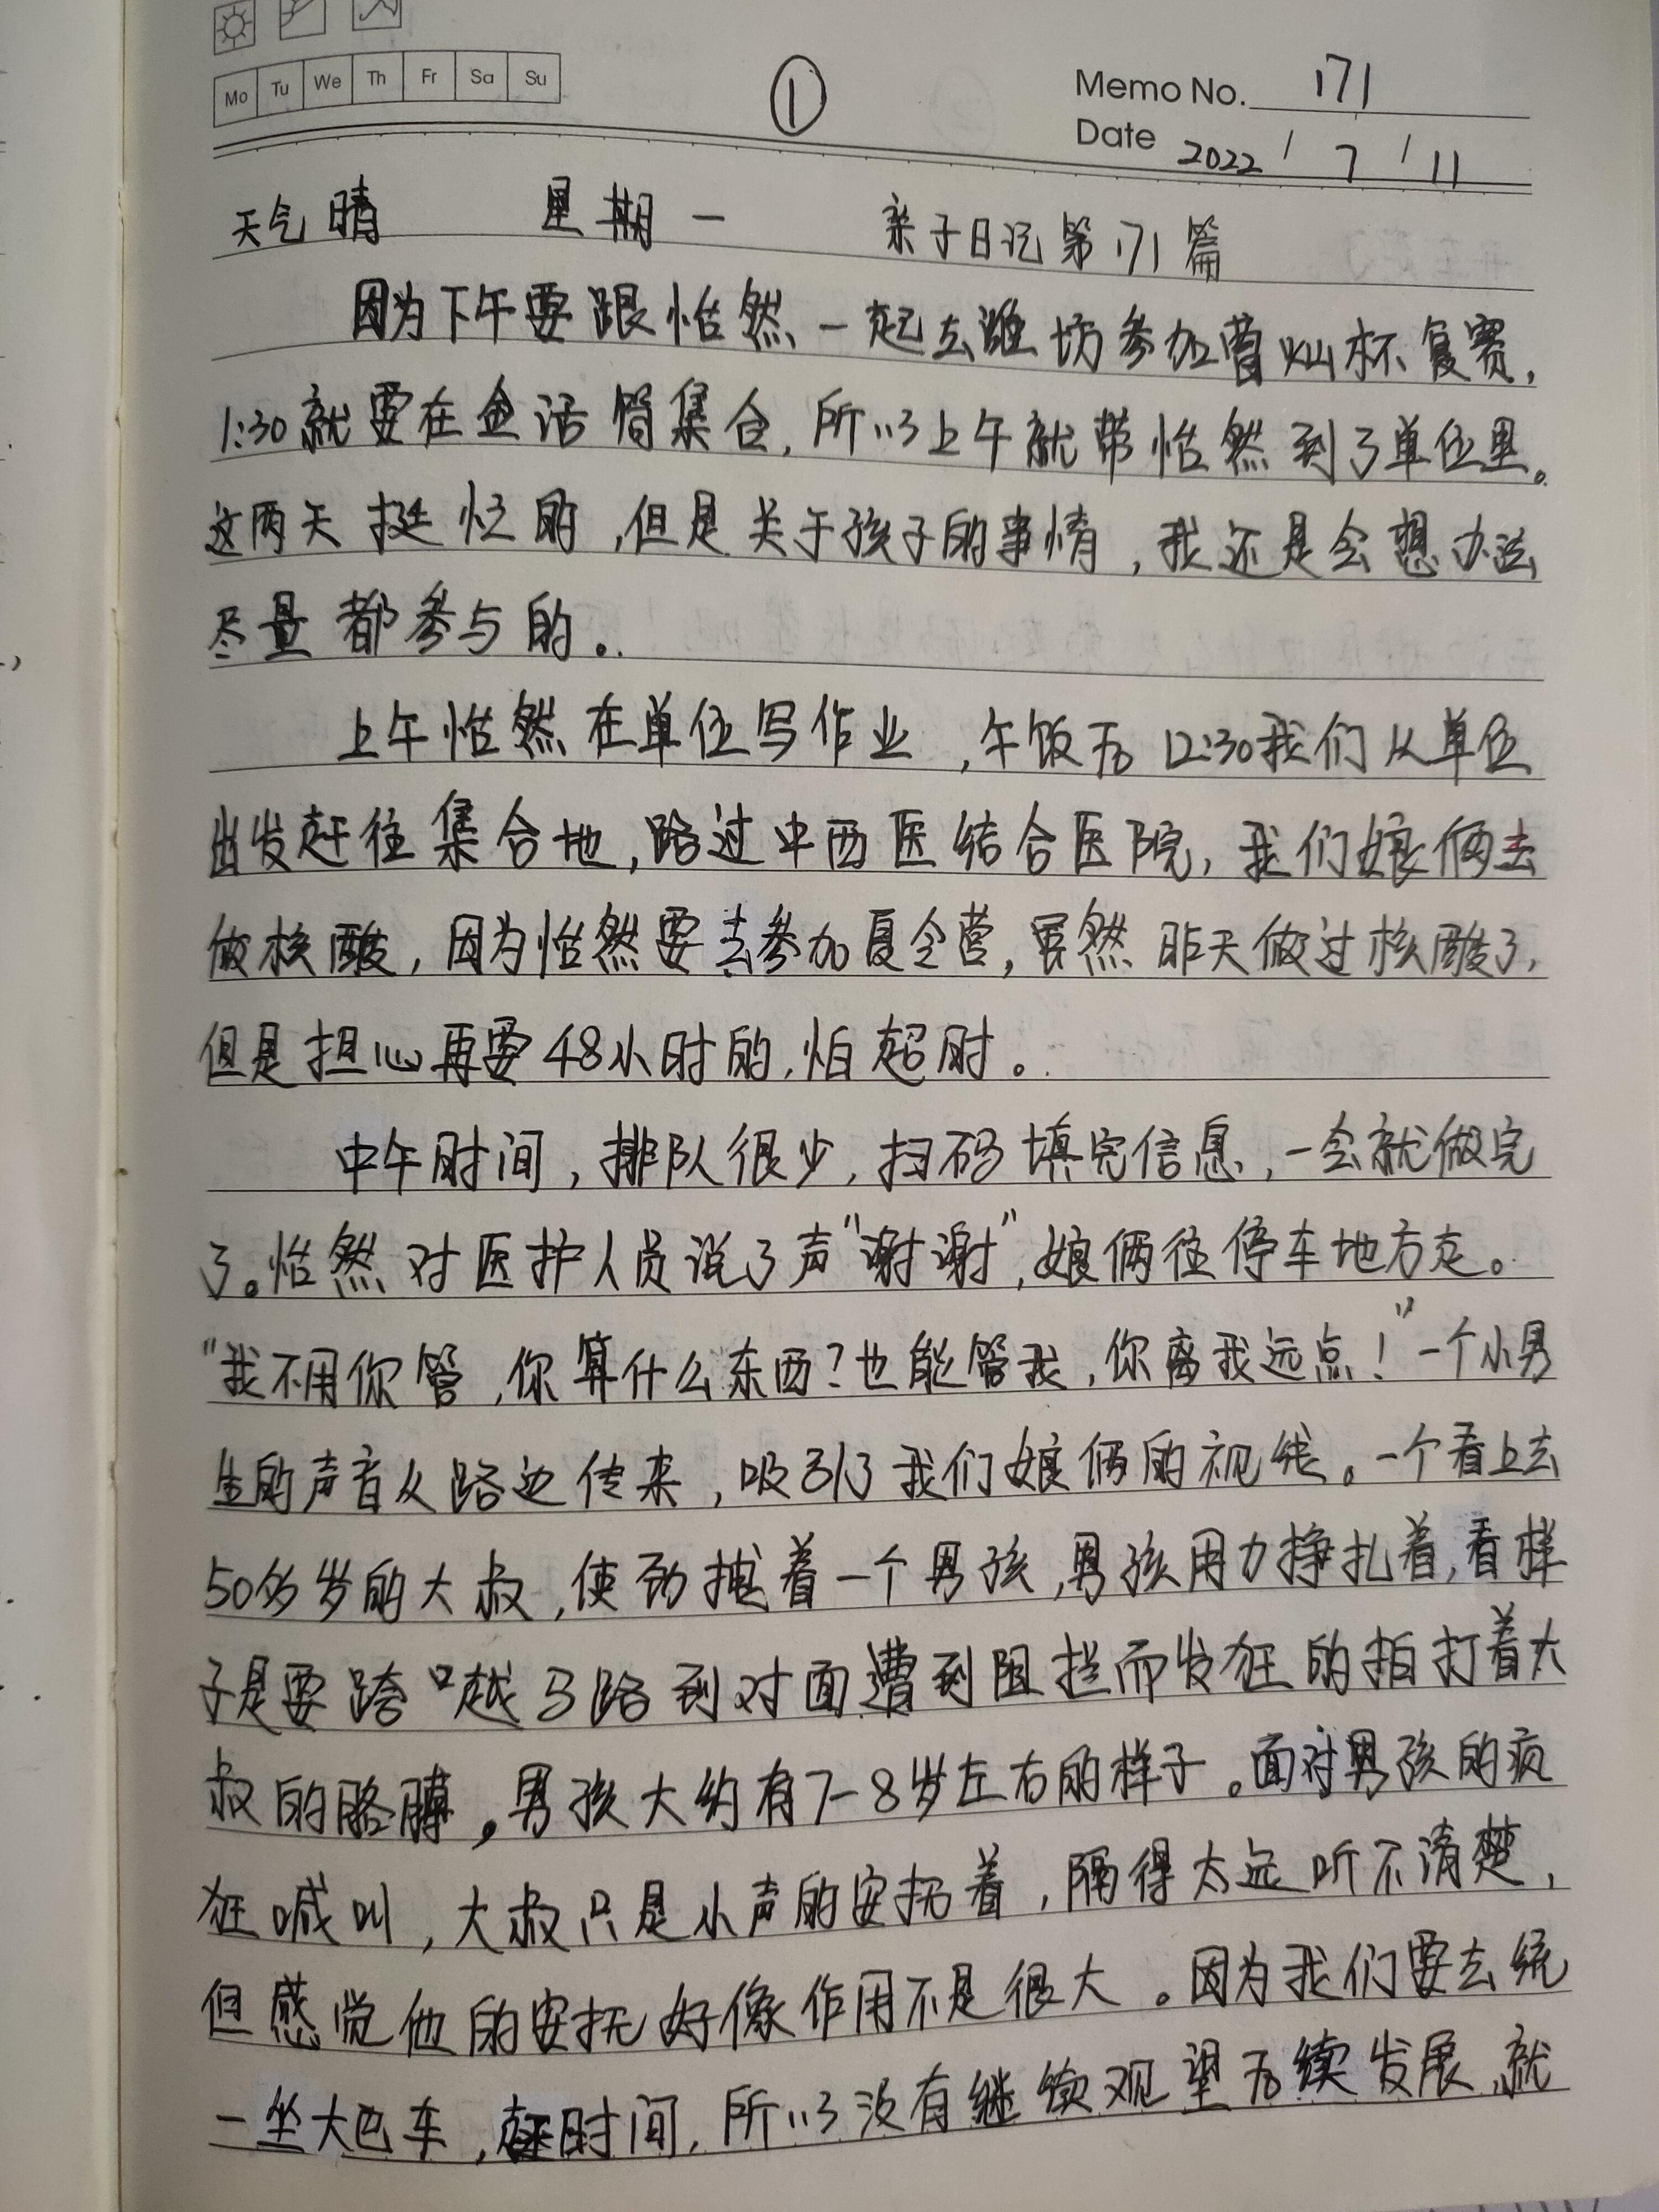 Mo Tu We Th Fr Sa Su
①
Memo No. 171
Date 2022 / 7 / 11
天气晴 星期一 亲子日记第171篇
因为下午要跟怡然一起去潍坊参加曹灿杯复赛,
1:30就要在金话筒集合,所以上午就带怡然到了单位里。
这两天挺忙的,但是关于孩子的事情,我还是会想办法
尽量都参与的。
上午怡然在单位写作业,午饭后12:30我们从单位
出发赶往集合地,路过中西医结合医院,我们娘俩去
做核酸,因为怡然要去参加夏令营,虽然昨天做过核酸了,
但是担心再要48小时的,怕超时。
中午时间,排队很少,扫码填完信息,一会就做完
了。怡然对医护人员说了声"谢谢",娘俩往停车地方走。
"我不用你管,你算什么东西?也能管我,你离我远点!"一个小男
生的声音从路边传来,吸引了我们娘俩的视线。一个看上去
50多岁的大叔,使劲拽着一个男孩,男孩用力挣扎着,看样
子是要跨越马路到对面遭到阻拦而发狂的拍打着大
叔的胳膊,男孩大约有7-8岁左右的样子。面对男孩的疯
狂喊叫,大叔只是小声的安抚着,隔得太远听不清楚,
但感觉他的安抚好像作用不是很大。因为我们要去统
一坐大巴车,赶时间,所以没有继续观望后续发展,就